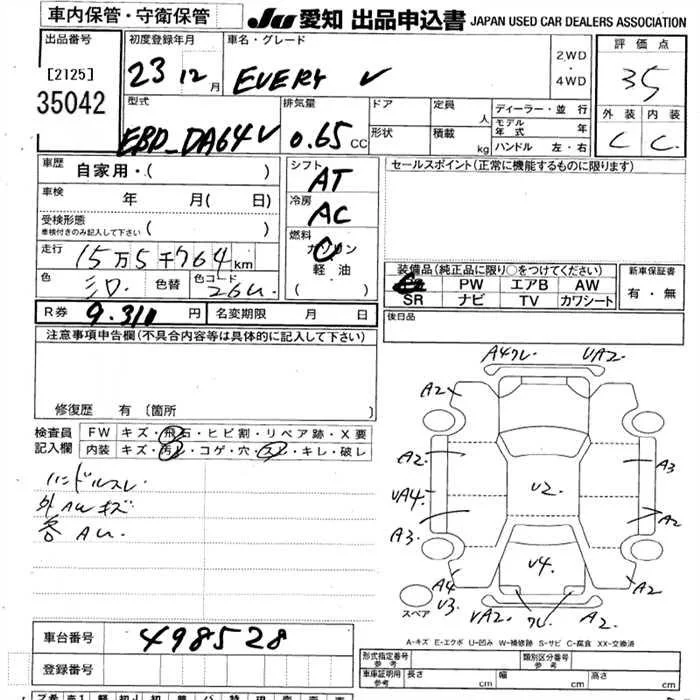 車内保管・守衛保管
JU 愛知 出品申込書 JAPAN USED CAR DEALERS ASSOCIATION
出品番号
[2125]
35042
初度登録年月
23 12 月
車名・グレード
EVERY V
2,WD
・
4WD
評価点
35
外装 内装
C C
型式
EBD_DA64V
排気量
0.65 CC
ドア
形状
定員 人
積載 kg
ディーラー・並行
モデル年式 年
ハンドル 左・右
車歴
自家用・( )
車検
年 月( 日)
受検形態
車検付きのみ記入して下さい ( )
走行
15万5千764 km
色
色替
色コード
26U
シフト
AT
冷房
AC
燃料
ガソリン
軽油
( )
セールスポイント(正常に機能するものに限ります)
装備品(純正品に限り○をつけてください)
PW エアB AW
SR ナビ TV カワシート
新車保証書
有・無
後日品
R券 9.310 円
名変期限 月 日
注意事項申告欄(不具合内容等は具体的に記入して下さい)
修復歴 有〔箇所 〕
検査員記入欄
FW キズ・飛石・ヒビ割・リペア跡・X要
内装 キズ・汚レ・コゲ・穴・スレ・キレ・破レ
ハンドルスレ
外AWキズ
各AU
A4ワレ UA2
A2
A2 A3
UA4 U2. A2
A3
A4 U4. A2
U3
UA2 ワレ A2
スペア
A-キズ E-エクボ U-凹み W-補修跡 S-サビ C-腐食 XX-交換済
車台番号
498528
登録番号
形式指定番号 参考
類別区分番号 参考
車庫証明用 参考
長さ cm 幅 cm 高さ cm